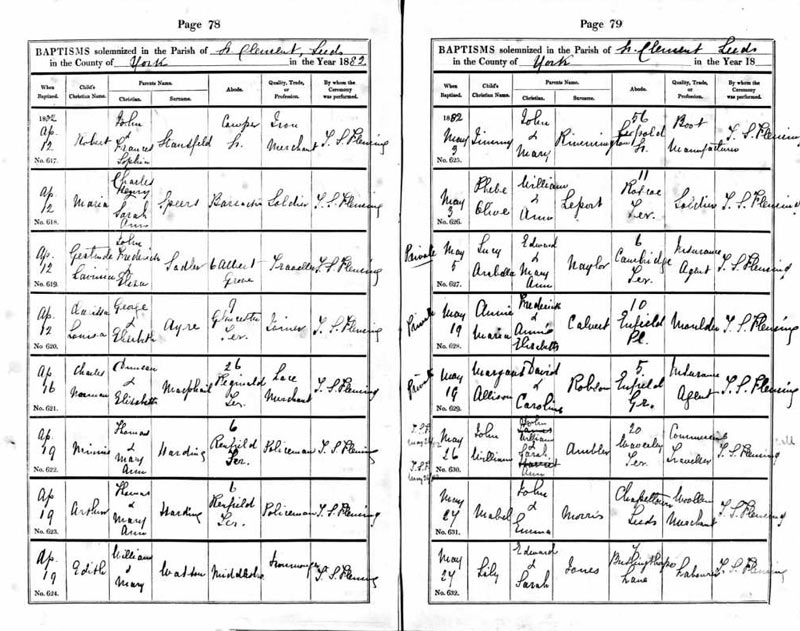 Page 78
BAPTISMS solemnized in the Parish of St Clement, Leeds
in the County of York in the Year 1882
When Baptized. Child's Christian Name. Parents Name. Christian. Surname. Abode. Quality, Trade, or Profession. By whom the Ceremony was performed.
1882 Ap. 12 No. 617. Robert John & Frances Sophia Stansfeld Cowper St. Iron Merchant T. S. Fleming
Ap. 12 No. 618. Maria Charles Henry & Sarah Ann Speers Barracks Soldier T. S. Fleming
Ap. 12 No. 619. Gertrude Lavinia John Frederick & Eliza Sadler 6 Albert Grove Traveller T. S. Fleming
Ap. 12 No. 620. Louisa George & Elizabeth Ayre 9 Ter. Joiner T. S. Fleming
Ap 16 No. 621. Charles Norman Duncan & Elizabeth Macphail 26 Reginald Ter. Lace Merchant T. S. Fleming
Ap. 19 No. 622. Minnie Thomas & Mary Ann Harding 6 Renfield Ter. Policeman T. S. Fleming
Ap 19 No. 623. Arthur Thomas & Mary Ann Harding 6 Renfield Ter. Policeman T. S. Fleming
Ap. 19 No. 624. Edith William & Mary Watson Ironmonger T. S. Fleming
Page 79
BAPTISMS solemnized in the Parish of St. Clement Leeds
in the County of York in the Year 18
When Baptized. Child's Christian Name. Parents Name. Christian. Surname. Abode. Quality, Trade, or Profession. By whom the Ceremony was performed.
1882 May 3 No. 625. Jimmy John & Mary Rivenington 56 Leopold St. Boot Manufacturer T. S. Fleming
May 3 No. 626. Phebe Olive William & Ann Leport 11 Roscoe Ter. Soldier T. S. Fleming
Private May 5 No. 627. Lucy Arabella Edward & Mary Ann Naylor 6 Cambridge Ter. Insurance Agent T. S. Fleming
Private May 19 No. 628. Annie Maria Frederick & Annie Elizabeth Calvert 10 Enfield Pl. Moulder T. S. Fleming
Private May 19 No. 629. Margaret Allison David & Caroline Robson 5. Enfield Gr. Insurance Agent T. S. Fleming
May 26 No. 630. John William John James William & Sarah Harriet Ann Ambler 20 Waverley Ter. Commercial Traveller T. S. Fleming
May 27 No. 631. Mabel John & Emma Morris Chapeltown Leeds Woollen Merchant T. S. Fleming
May 27 No. 632. Lily Edward & Sarah Jones 7 Buslingthorpe Lane Labourer T. S. Fleming